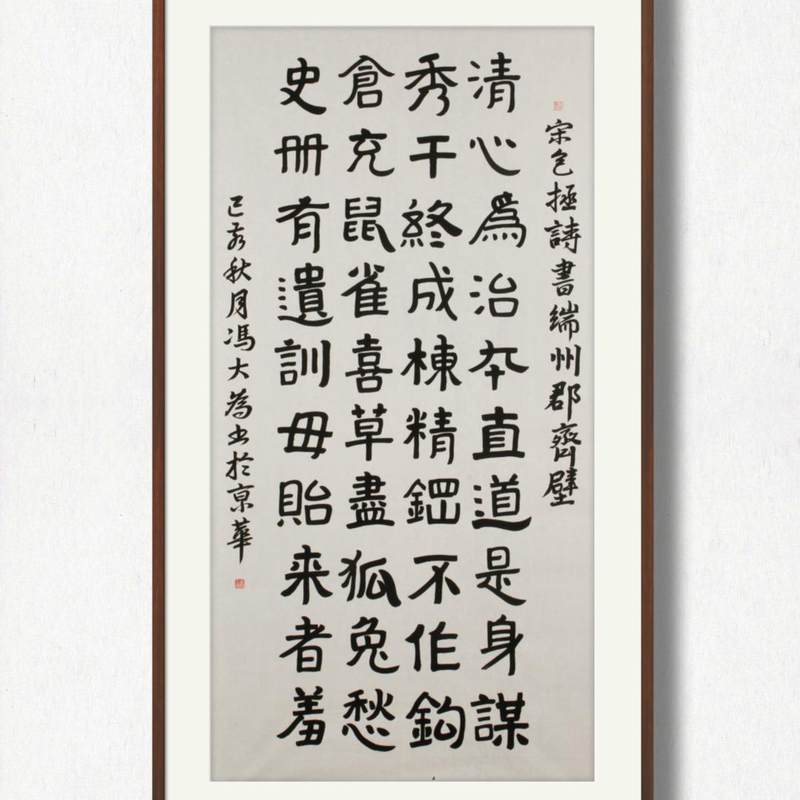 宋包拯詩書端州郡齊壁
清心爲治本直道是身謀
秀干終成棟精鋼不作鈎
倉充鼠雀喜草盡狐兔愁
史冊有遺訓毋貽来者羞
己亥秋月馮大為书於京華